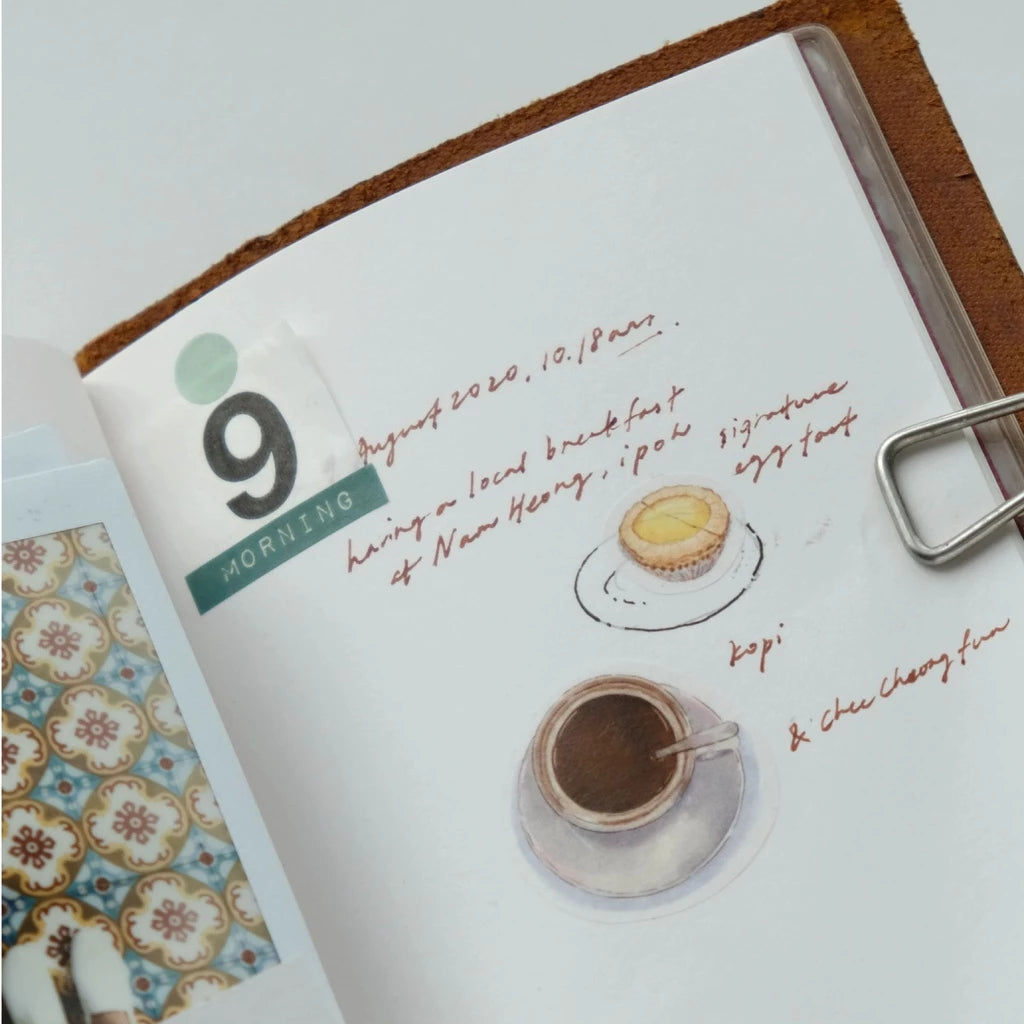 9
MORNING
August 2020, 10.18am.
having a local breakfast
at Nam Heong, ipoh
signature
egg tart
kopi
& Chee Cheong fun